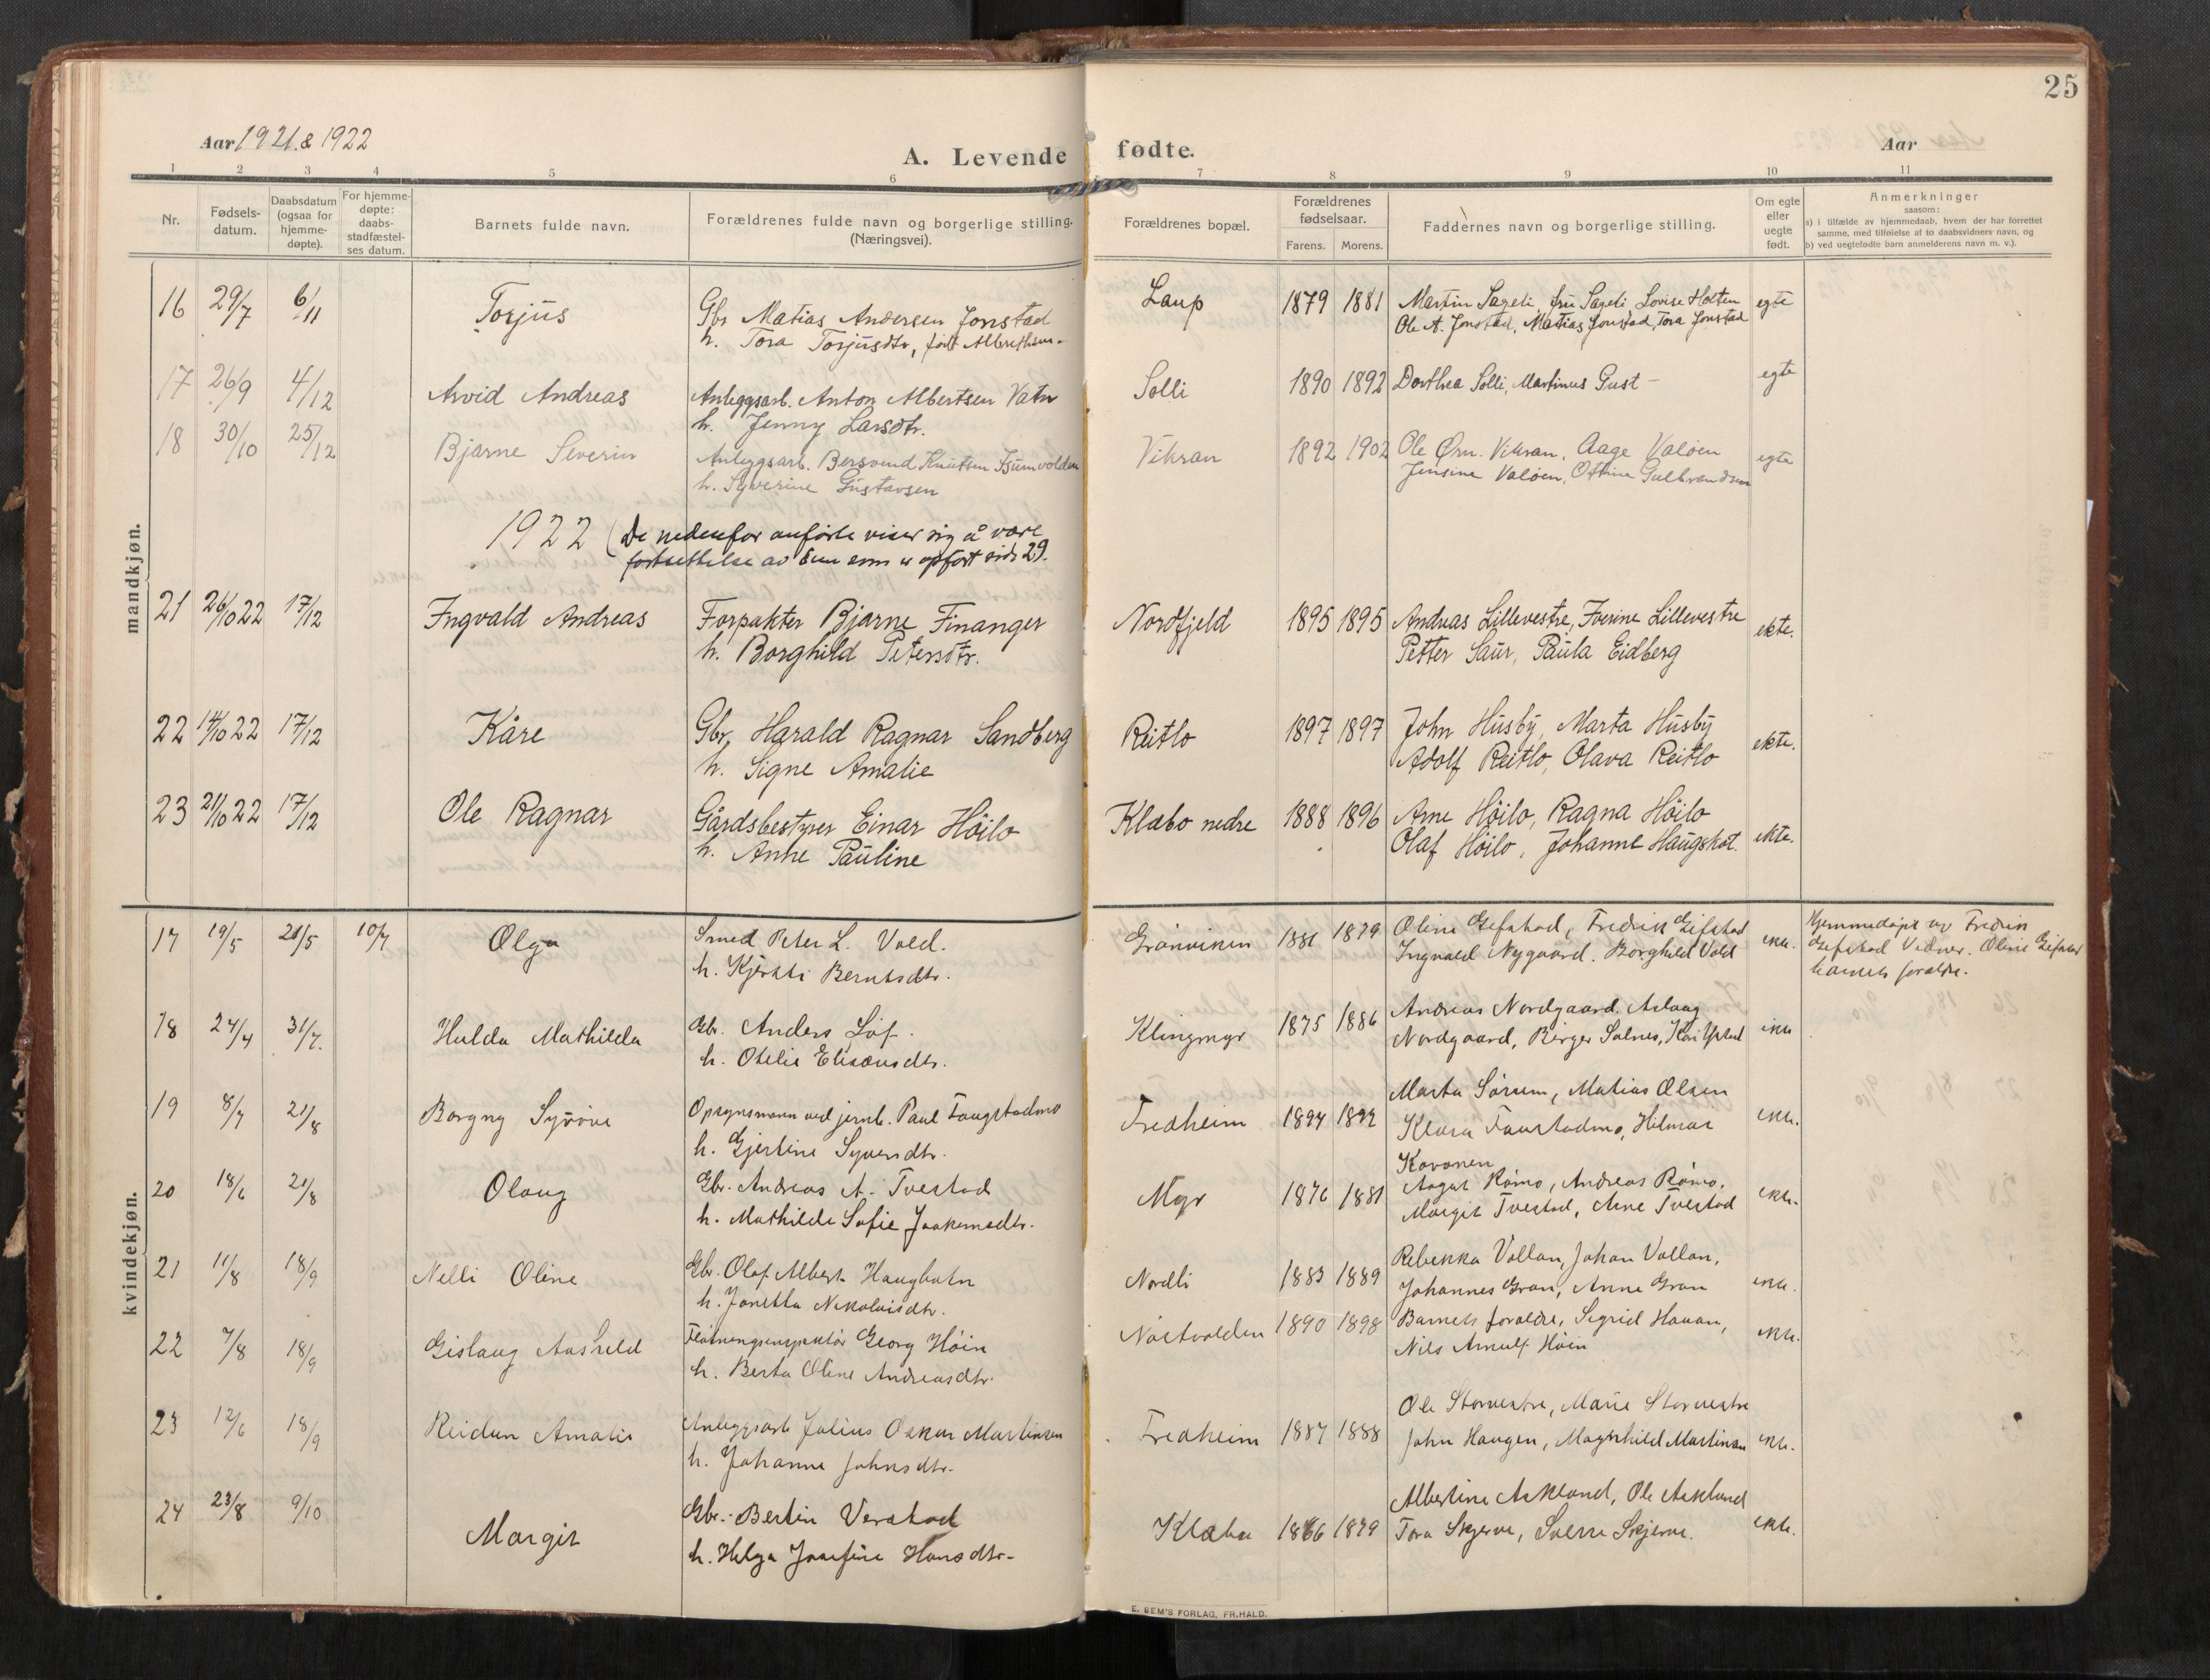 25
Aar 1921 & 1922
A. Levende fødte.
Aar
1 2 3 4 5 6 7 8 9 10 11
Nr.
Fødsels-
datum.
Daabsdatum
(ogsaa for
hjemme-
døpte).
For hjemme-
døpte:
daabs-
stadfæstel-
ses datum.
Barnets fulde navn.
Forældrenes fulde navn og borgerlige stilling.
(Næringsvei).
Forældrenes bopæl.
Forældrenes
fødselsaar.
Farens. Morens.
Faddernes navn og borgerlige stilling.
Om egte
eller
uegte
født.
Anmerkninger
saasom:
a) i tilfælde av hjemmedaab, hvem der har forrettet
samme, med tilføielse af to daabsvidners navn, og
b) ved uegtefødte barn anmelderens navn m. v.).
mandkjøn.
16 29/7 6/11 Torjus Gbr Matias Andersen Jonstad Laup 1879 1881 Martin Sageli, fru Sageli Lovise Holten egte
h. Tora Torjusdtr, født Albrethsen. Ole A. Jonstad, Matias Jonstad, Tora Jonstad
17 26/9 4/12 Arvid Andreas Anleggsarb. Anton Albertsen Vatn Solli 1890 1892 Dorthea Solli, Martinus Gust - egte
h. Jenny Larsdtr.
18 30/10 25/12 Bjarne Severin Anleggsarb. Bersvend Knutsen Vikran 1892 1902 Ole Ørn. Vikran, Aage Valøen egte
h. Syverine Gustavsen Jensine Valøen, Gulbrandsen
1922 (De nedenfor anførte viser sig å være
fortsettelse av dem som er opført side 29.
21 26/10 22 17/12 Ingvald Andreas Forpakter Bjarne Finanger Nordfjeld 1895 1895 Andreas Lillevestre, Iverine Lillevestre ekte.
h. Borghild Petersdtr. Petter Saur, Paula Eidberg
22 14/10 22 17/12 Kåre Gbr, Harald Ragnar Sandberg Reitlo 1897 1897 John Husby, Marta Husby ekte.
h. Signe Amalie Adolf Reitlo, Olava Reitlo
23 21/10 22 17/12 Ole Ragnar Gårdsbestyrer Einar Höilo Klæbo nedre 1888 1896 Arne Höilo, Ragna Höilo ekte.
h. Anne Pauline Olaf Höilo, Johanne Haugskot.
kvindekjøn.
17 19/5 21/5 10/7 Olga Smed Peter L. Vold. Grönviken 1881 1879 Oline Gifstad, Fredrik Gifstad ekte. Hjemmedøpt av Fredrik
h. Kjersti Berntsdtr. Ingvald Nygaard. Borghild Vold Gifstad Vidner. Oline Gifstad
barnets forældre.
18 24/4 31/7. Hulda Mathilda Gbr. Anders Löf. Klingmyr 1875 1886 Andreas Nordgaard. Aslaug ekte
h. Otelie Eliseusdtr. Nordgaard, Birger Solnes, Kari Ystad
19 8/7 21/8 Borgny Syvøve Opsynsmann ved jernb. Paul Faugstadmo Fredheim 1894 1892 Marta Sørum, Matias Olsen ekte.
h. Gjertine Syversdtr. Klara Faustadmo, Hilmar
20 18/6 21/8 Olaug Gbr. Andreas A. Tvestad Myr 1876 1881 August Römo, Andreas Römo, ekte.
h. Mathilde Sofie Joakimsdtr. Margit Tvestad, Arne Tvestad
21 11/8 18/9 Nelli Oline Gbr. Olaf Albert Haugbotn Nordli 1883 1889 Rebekka Vollan, Johan Vollan, ekte.
h. Janetta Nikolaisdtr. Johannes Gran, Anne Gran
22 7/8 18/9 Gislaug Aashild Flötningsinspektör Georg Höin Nöstvolden 1890 1898 Barnets foreldre, Sigrid Hauan, ekte.
h. Berta Oline Andreasdtr. Nils Arnulf Höin
23 12/6 18/9 Reidun Amalie Anleggsarb Julius Oskar Martinsen Fredheim 1887 1888 Ole Storvestre, Marie Storvestre ekte.
h. Johanne Johnsdtr. John Haugen, Magnhild Martinsen
24 23/8 9/10 Margit Gbr. Bertin Verstad Klæbu 1866 1879 Albertine Askland, Ole Askland ekte.
h. Helga Josefine Hansdtr. Tora Skjerve, Sverre Skjerve.
E. SEM'S FORLAG, FR.HALD.